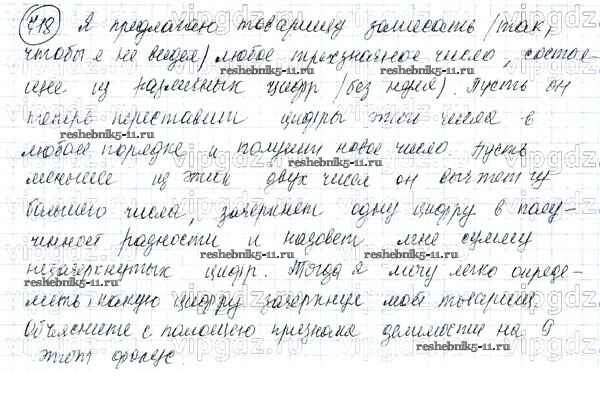 718 Я предлагаю товарищу записать (так,
чтобы я не видел) любое трехзначное число, состоя-
щее из различных цифр (без нуля). Пусть он
reshebnik5-11.ru
теперь переставит цифры этого числа в
reshebnik5-11.ru
любом порядке и получит новое число. Пусть
меньшее из этих двух чисел он вычтет из
большего числа, зачеркнет одну цифру в полу-
ченной разности и назовет мне сумму
reshebnik5-11.ru
незачеркнутых цифр. Тогда я могу легко опреде-
reshebnik5-11.ru
лить, какую цифру зачеркнул мой товарищ.
Объясните с помощью признака делимости на 9
reshebnik5-11.ru
этот фокус.
reshebnik5-11.ru